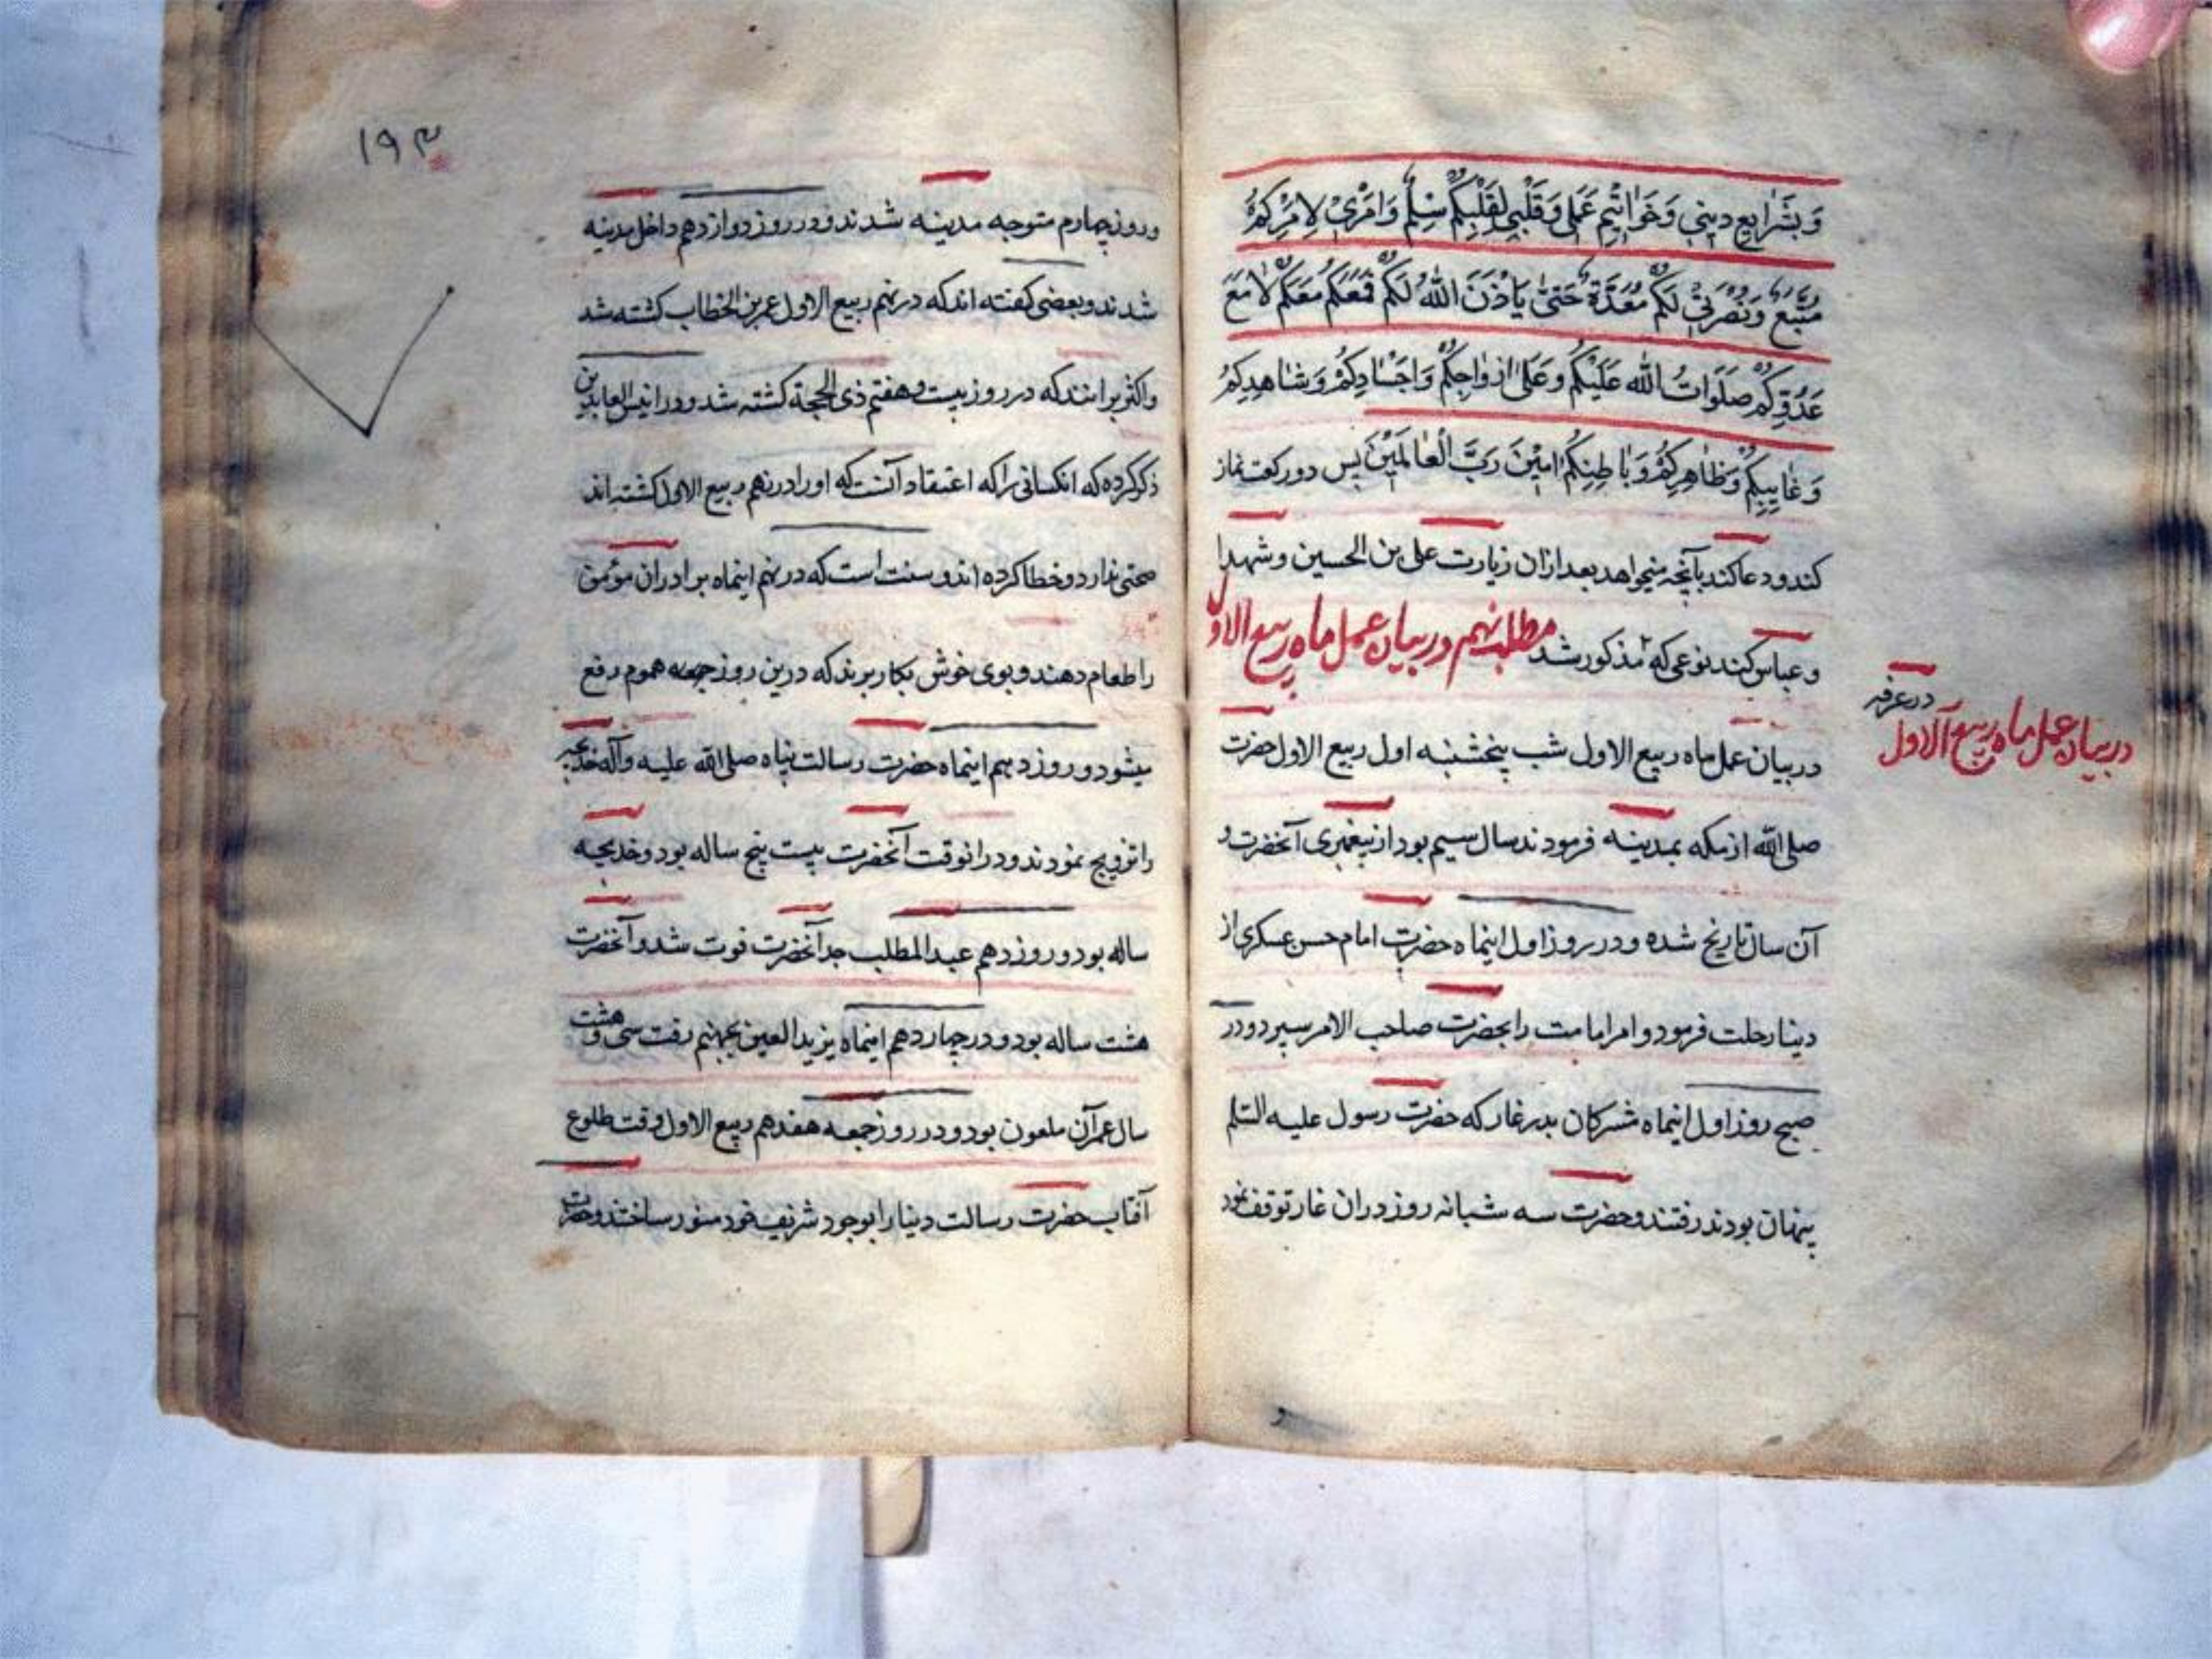 وَبِشَرٰایِعِ دینی وَخَوٰاتْیمِ عَمَلی وَقَلْبی لِقَلْبِکُمْ سِلْمٌ وَاَمْری لِاَمْرِکُمْ
مُتَّبِعٌ وَنُصْرَتی لَکُمْ مُعَدَّةٌ حَتّیٰ یَاْذَنَ اللّٰهُ لَکُمْ فَمَعَکُمْ مَعَکُمْ لٰا مَعَ
عَدُوِّکُمْ صَلَوٰاتُ اللّٰه عَلَیْکُمْ وَعَلیٰ اَزوٰاجِکُمْ وَاَجْسٰادِکُمْ وَشٰاهِدِکُمْ
وَغٰایِبِکُمْ وَظٰاهِرِکُمْ وَبٰاطِنِکُمْ امینَ رَبَّ الْعٰالَمینَ پس دورکعت نماز
کند ودعا کند بآنچه میخواهد بعد ازان زیارت علی بن الحسین وشهدا
وعباس کند بنوعی که مذکور شد مطلب نهم در بیان عمل ماه ربیع الاول
در غرفه
در بیان عمل ماه ربیع الاول
در بیان عمل ماه ربیع الاول شب پنجشنبه اول ربیع الاول حضرت
صلی اللّه از مکه بمدینه فرمودند سال سیم بود از پیغمبری آنحضرت و
آن سال تاریخ شده ودر روز اول اینماه حضرت امام حسن عسکری از
دینا رحلت فرمود وامر امامت را بحضرت صاحب الامر سپرد ودر
صبح روز اول اینماه مشرکان بدر غار که حضرت رسول علیه السلم
پنهان بودند رفتند وحضرت سه شبانه روز دران غار توقف نمود
و
۱۹۳
وروز چهارم متوجه مدینه شدند ودر روز دوازدهم داخل مدینه
شدند وبعضی کفته اند که در نهم ربیع الاول عمر بن الخطاب کشته شد
واکثر برانند که در روز بیست وهفتم ذی الحجة کشته شد ودر انیس العابدین
ذکر کرده که انکسانی را که اعتقاد آنست که اورا در نهم ربیع الاول کشته اند
صحتی ندارد وخطا کرده اند وسنت است که در نهم اینماه برادران مؤمن
را طعام دهند وبوی خوش بکار برند که درین روز جمعه هموم رفع
میشود وروز دهم اینماه حضرت رسالت پناه صلی الله علیه وآله خدیجه
را تزویج نمودند ودر انوقت آنحضرت بیست پنج ساله بود وخدیجه
ساله بود وروز دهم عبد المطلب جد آنحضرت فوت شد وآنحضرت
هشت ساله بود ودر چهاردهم اینماه یزید العین بجهنم رفت سی وهشت
سال عمر آن ملعون بود ودر روز جمعه هفدهم ربیع الاول وقت طلوع
آفتاب حضرت رسالت دینا را بوجود شریف خود منور ساختند وحضرت